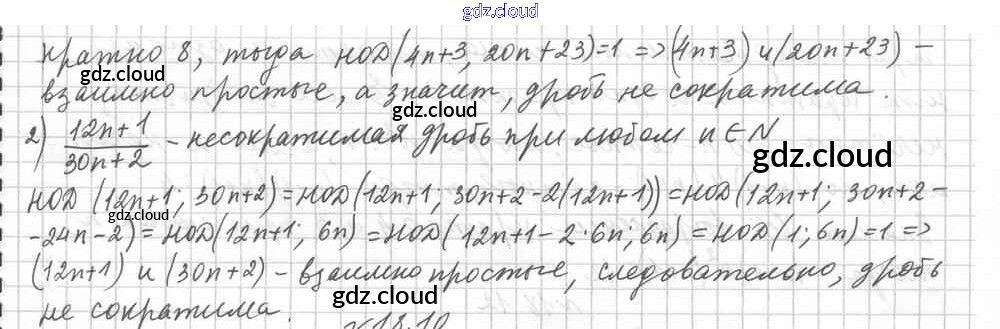 gdz.cloud
кратно 8, тогда НОД(4n+3, 20n+23)=1 => (4n+3) и (20n+23) –
gdz.cloud
взаимно простые, а значит, дробь не сократима.
gdz.cloud
2) (12n+1)/(30n+2) – несократимая дробь при любом n∈N
gdz.cloud
gdz.cloud
НОД (12n+1; 30n+2) = НОД(12n+1; 30n+2-2(12n+1)) = НОД(12n+1; 30n+2-
gdz.cloud
gdz.cloud
-24n-2) = НОД(12n+1; 6n) = НОД(12n+1-2·6n; 6n) = НОД(1; 6n)=1 =>
(12n+1) и (30n+2) – взаимно простые, следовательно, дробь
gdz.cloud
не сократима.
18.10